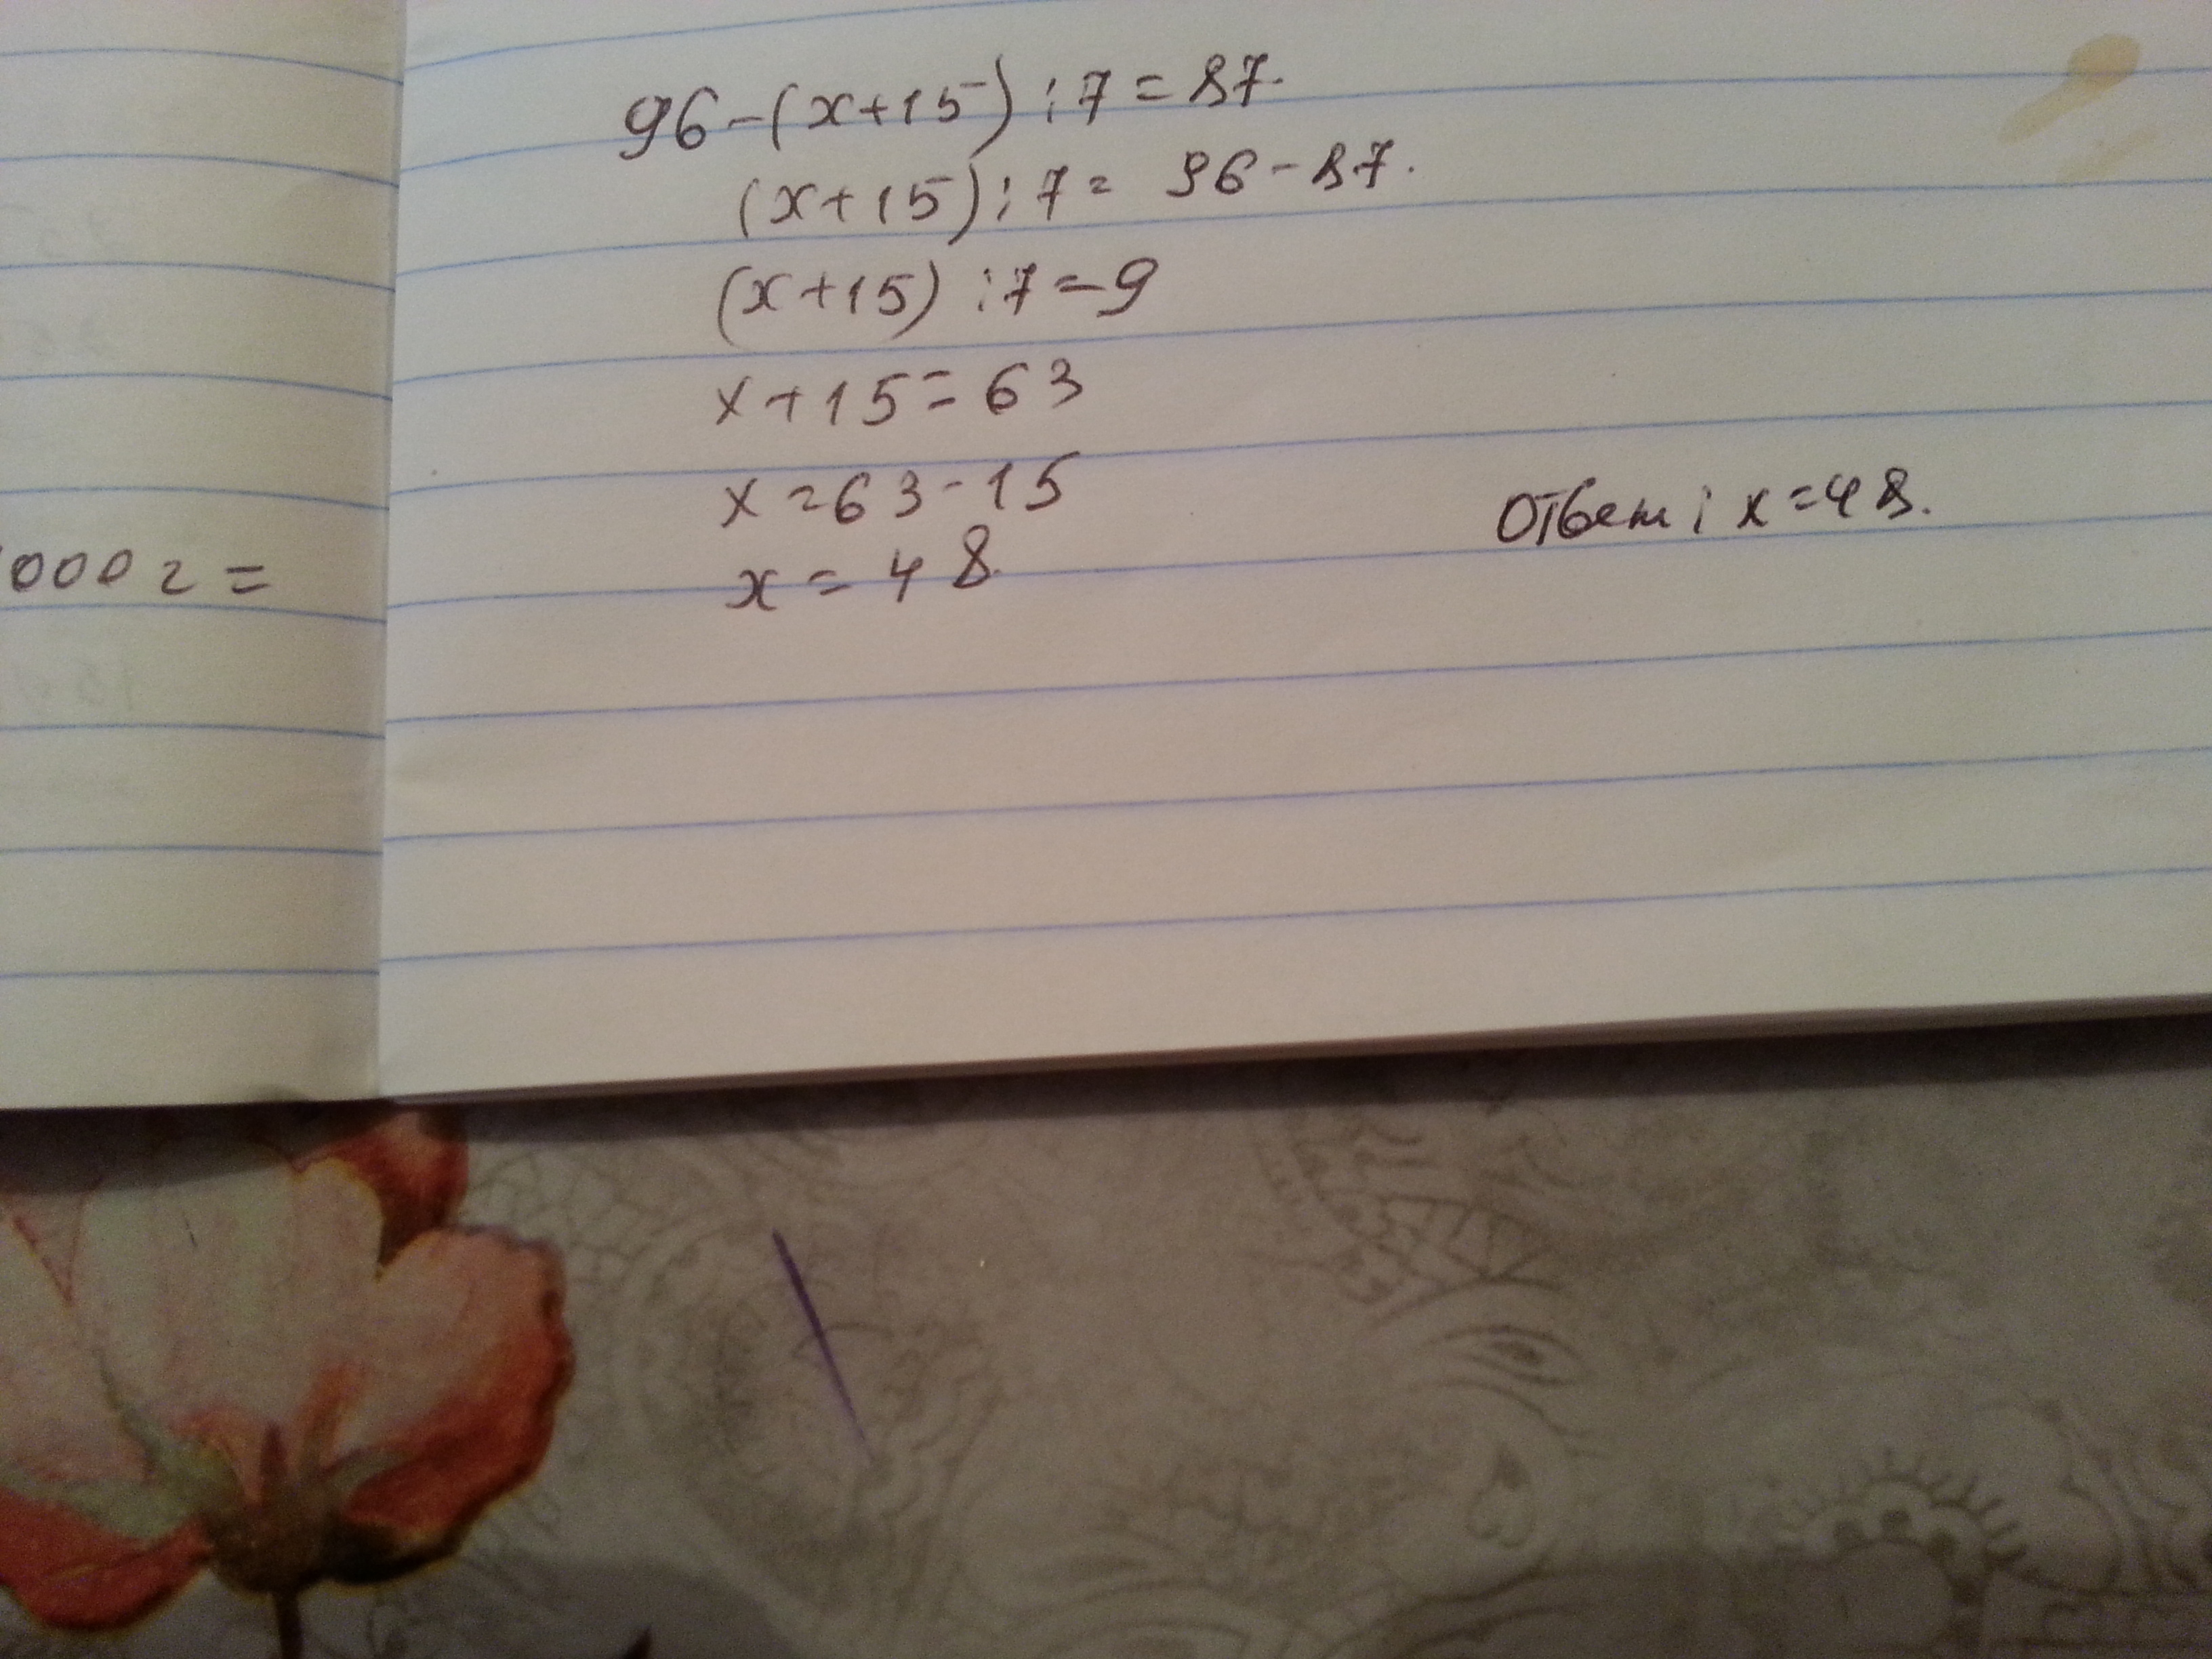 96-(x+15):7=87.
(x+15):7= 96-87.
(x+15):7=9
x+15=63
x=63-15
x=48.
Ответ: x=48.
000г=